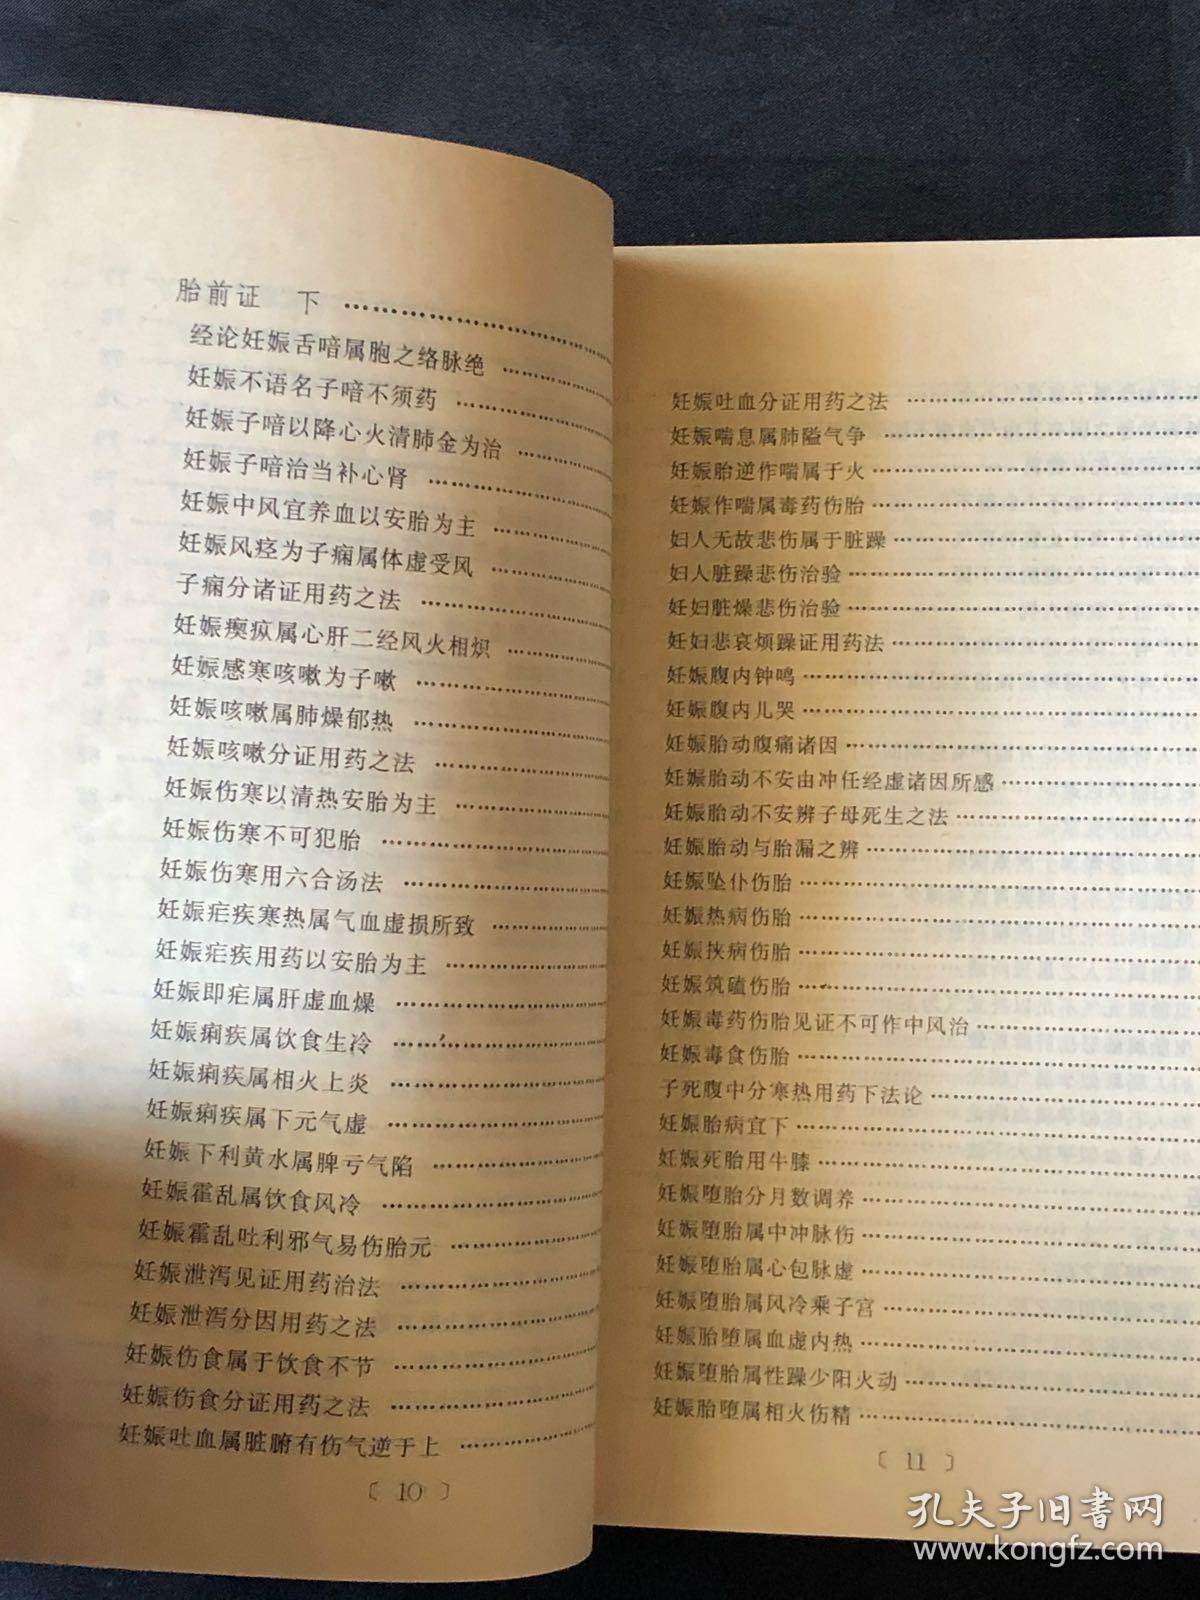 胎前证 下
经论妊娠舌喑属胞之络脉绝
妊娠不语名子喑不须药
妊娠子喑以降心火清肺金为治
妊娠子喑治当补心肾
妊娠中风宜养血以安胎为主
妊娠风痉为子痫属体虚受风
子痫分诸证用药之法
妊娠瘈疭属心肝二经风火相炽
妊娠感寒咳嗽为子嗽
妊娠咳嗽属肺燥郁热
妊娠咳嗽分证用药之法
妊娠伤寒以清热安胎为主
妊娠伤寒不可犯胎
妊娠伤寒用六合汤法
妊娠疟疾寒热属气血虚损所致
妊娠疟疾用药以安胎为主
妊娠即疟属肝虚血燥
妊娠痢疾属饮食生冷
妊娠痢疾属相火上炎
妊娠痢疾属下元气虚
妊娠下利黄水属脾亏气陷
妊娠霍乱属饮食风冷
妊娠霍乱吐利邪气易伤胎元
妊娠泄泻见证用药治法
妊娠泄泻分因用药之法
妊娠伤食属于饮食不节
妊娠伤食分证用药之法
妊娠吐血属脏腑有伤气逆于上
〔 10 〕
妊娠吐血分证用药之法
妊娠喘息属肺隘气争
妊娠胎逆作喘属于火
妊娠作喘属毒药伤胎
妇人无故悲伤属于脏躁
妇人脏躁悲伤治验
妊妇脏燥悲伤治验
妊妇悲哀烦躁证用药法
妊娠腹内钟鸣
妊娠腹内儿哭
妊娠胎动腹痛诸因
妊娠胎动不安由冲任经虚诸因所感
妊娠胎动不安辨子母死生之法
妊娠胎动与胎漏之辨
妊娠坠仆伤胎
妊娠热病伤胎
妊娠挟病伤胎
妊娠筑磕伤胎
妊娠毒药伤胎见证不可作中风治
妊娠毒食伤胎
子死腹中分寒热用药下法论
妊娠胎病宜下
妊娠死胎用牛膝
妊娠堕胎分月数调养
妊娠堕胎属中冲脉伤
妊娠堕胎属心包脉虚
妊娠堕胎属风冷乘子宫
妊娠胎堕属血虚内热
妊娠堕胎属性躁少阳火动
妊娠胎堕属相火伤精
〔 11 〕
孔夫子旧書网
www.kongfz.com